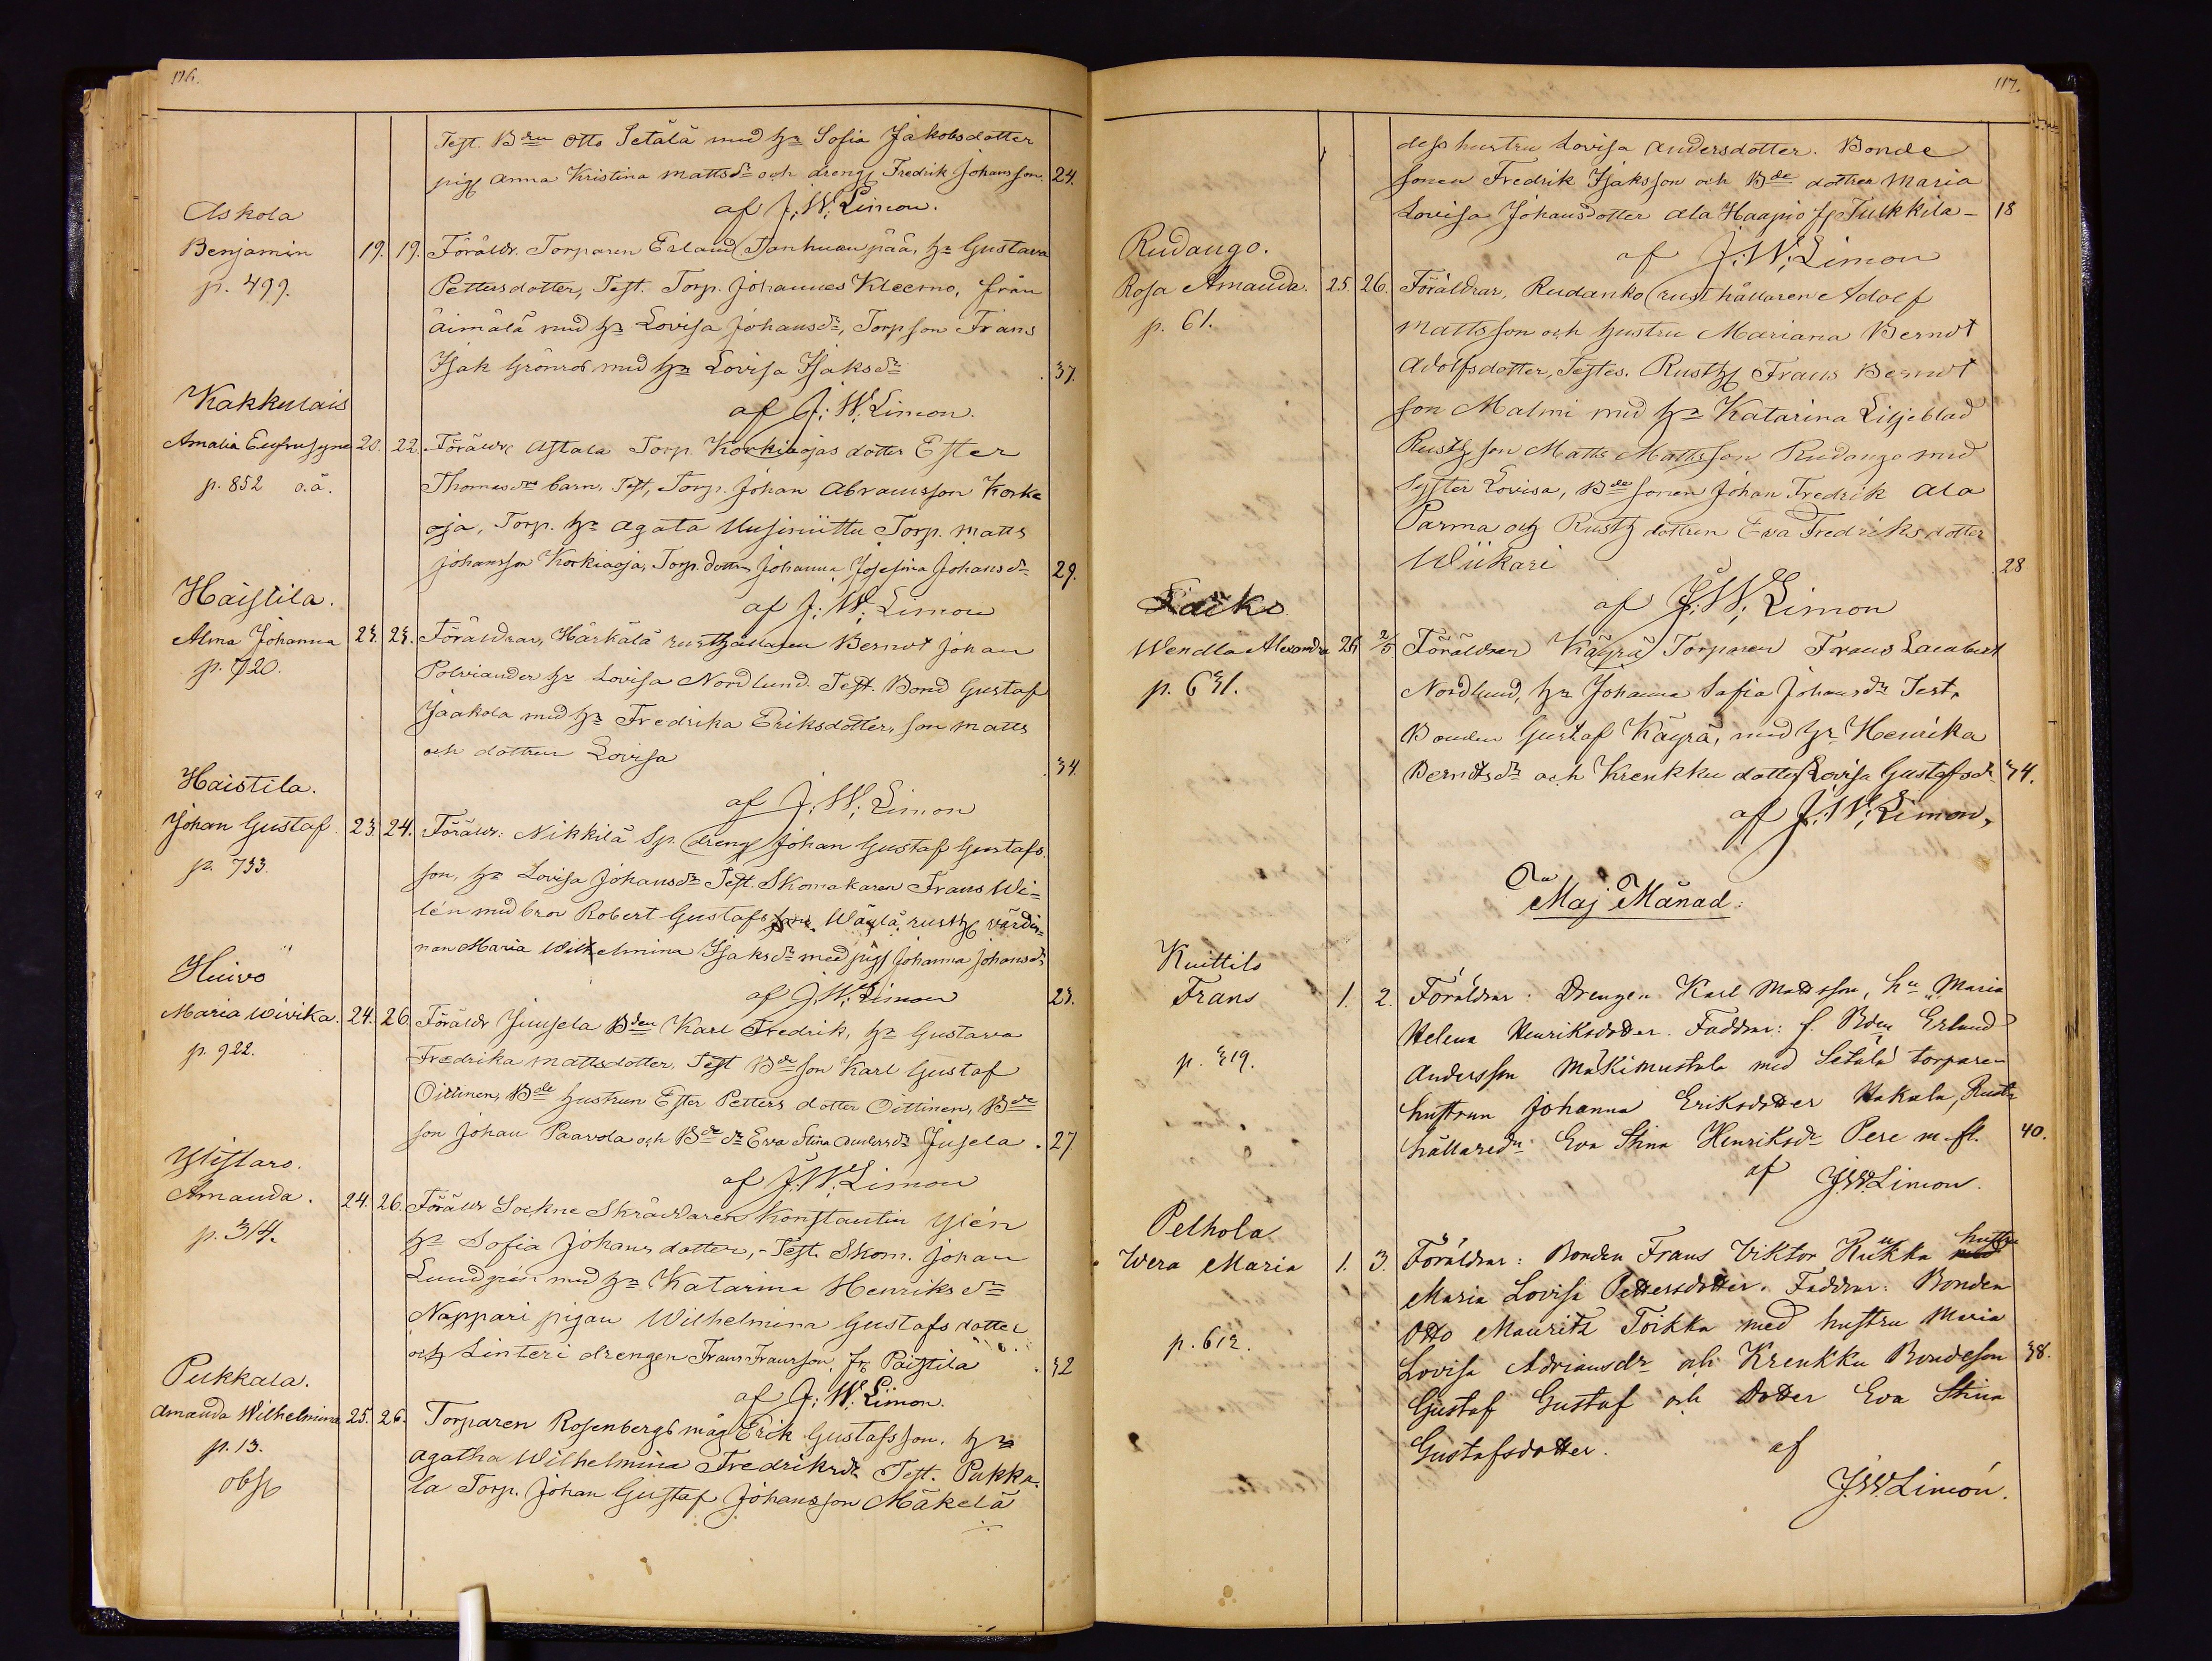 116.
Test. Bden Otto Setälä med hu Sofia Jakobsdotter
pig. Anna Kristina Mattsdr och dreng. Fredrik Johansson. 24.
af J. W. Limon.
Askola
Benjamin 19. 19. Föräldr. Torparen Erland Tanhuanpää, hu Gustava
p. 499. Pettersdotter, Test. Torp. Johannes Kleemo, från
Äimälä med hu Lovisa Johansdr, Torpson Frans
Isak Grönros med hu Lovisa Isaksdr 37.
af J. W. Limon.
Kakkulais
Amalia Eufrosyne 20. 22. Föräldr. Astala Torp. Korkiaojas dotter Ester
p. 852 o.ä. Thomasdrs barn, Test, Torp. Johan Abramsson Korke
oja, Torp. hu Agata Uusiniittu Torp. Matts
Johansson Korkiaoja, Torp. dottr Johanna Josefina Johansdr 29.
af J. W. Limon
Haistila.
Alma Johanna 23. 23. Föräldrar, Härkälä rusthållaren Berndt Johan
p. 720. Polviander hu Lovisa Nordlund. Test. Bond Gustaf
Jaakola med hu Fredrika Eriksdotter, son Matts
och dottren Lovisa 34.
af J. W. Limon
Haistila.
Johan Gustaf. 23. 24. Föräldr: Nikkilä Sp. dreng Johan Gustaf Gustafs
p. 733. son, hu Lovisa Johansdr Test. Skomakaren Frans Wi=
lén med bror Robert Gustafsson Wäylä, rusth. värdin=
nan Maria Wilhelmina Isaksdr med pig. Johanna Johansdr
af J. W. Limon 23.
Huivo
Maria Wivika. 24. 26. Föräldr Juusela Bden Karl Fredrik, hu Gustava
p. 922. Fredrika Mattsdotter, Test Bdeson Karl Gustaf
Oittinen, Bde hustrun Ester Petters dotter Oittinen, Bde
son Johan Paavola och Bde dr Eva Stina Andersdr Jusela. 27
af J. W. Limon
Ylistaro.
Amanda. 24. 26. Föräldr Sockne Skräddaren Konstantin Ylén
p. 314. hu Sofia Johansdotter, - Test. Skom. Johan
Lundgrén med hu Katarina Henriksdr
Nappari pigan Wilhelmina Gustafsdotter
och Linteri drengen Frans Fransson, fr. Paistila 32
af J. W. Limon.
Pukkala.
Amanda Wilhelmina 25. 26. Torparen Rosenbergs måg Erik Gustafsson. hu
p. 13. Agatha Wilhelmina Fredriksdr Test. Pukka.
obs la Torp. Johan Gustaf Johansson Mäkelä
117.
dess hustru Lovisa Andersdotter. Bonde
sonen Fredrik Isaksson och Bde dottren Maria
Lovisa Johansdotter Ala Haapio fr Tulkkila - 18
af J. W. Limon
Rudango.
Rosa Amanda. 25. 26. Föräldrar, Rudanko rusthållaren Adolf
p. 61. Mattsson och hustru Mariana Berndt
Adolfsdotter, Testes. Rusth. Frans Berndt
son Malmi med hu Katarina Liljeblad
Rusth son Matts Mattsson Rudango med
Syster Lovisa, Bde sonen Johan Fredrik Ala
Parma och Rusth dottren Eva Fredriksdotter
Wiikari 28
af J. W. Limon
Wendla Alexandra 26 2/5 Föräldrar Käyrä Torparen Frans Lambert
p. 631. Nordlund, hu Johanna Sofia Johansdr Test.
Bonden Gustaf Käyrä, med hu Henrika
Berndtsdr och Krenkku dotter Lovisa Gustafsdr 34.
af J. W. Limon.
Maj Månad:
Kuittilo
Frans 1. 2. Föräldrar: Drengen Karl Mattsson, hu Maria
Helena Henriksdotter. Faddrar: f. Bden Erland
p. 319. Andersson Mäkimustala med Setälä torpare-
hustrun Johanna Eriksdotter Hakala, Rust-
hållaredr Eva Stina Henriksdr Pere m. fl. 40.
af J. W. Limon.
Pelhola
Wera Maria 1. 3. Föräldrar: Bonden Frans Viktor Kukka hustru
Maria Lovisa Pettersdotter. Faddrar: Bonden
p. 612. Otto Mauritz Toikka med hustru Maria
Lovisa Adriansdr och Krenkku Bondeson 38.
Gustaf Gustaf och Dotter Eva Stina
Gustafsdotter. af
J. W. Limón.